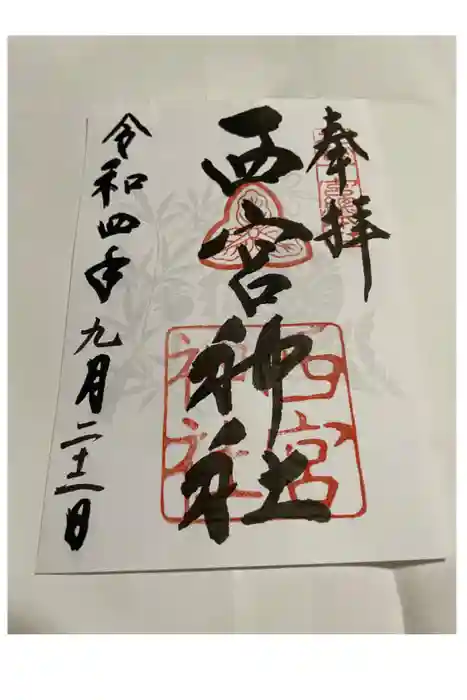 奉拝
西宮神社
西宮
神社
令和四年九月二十二日